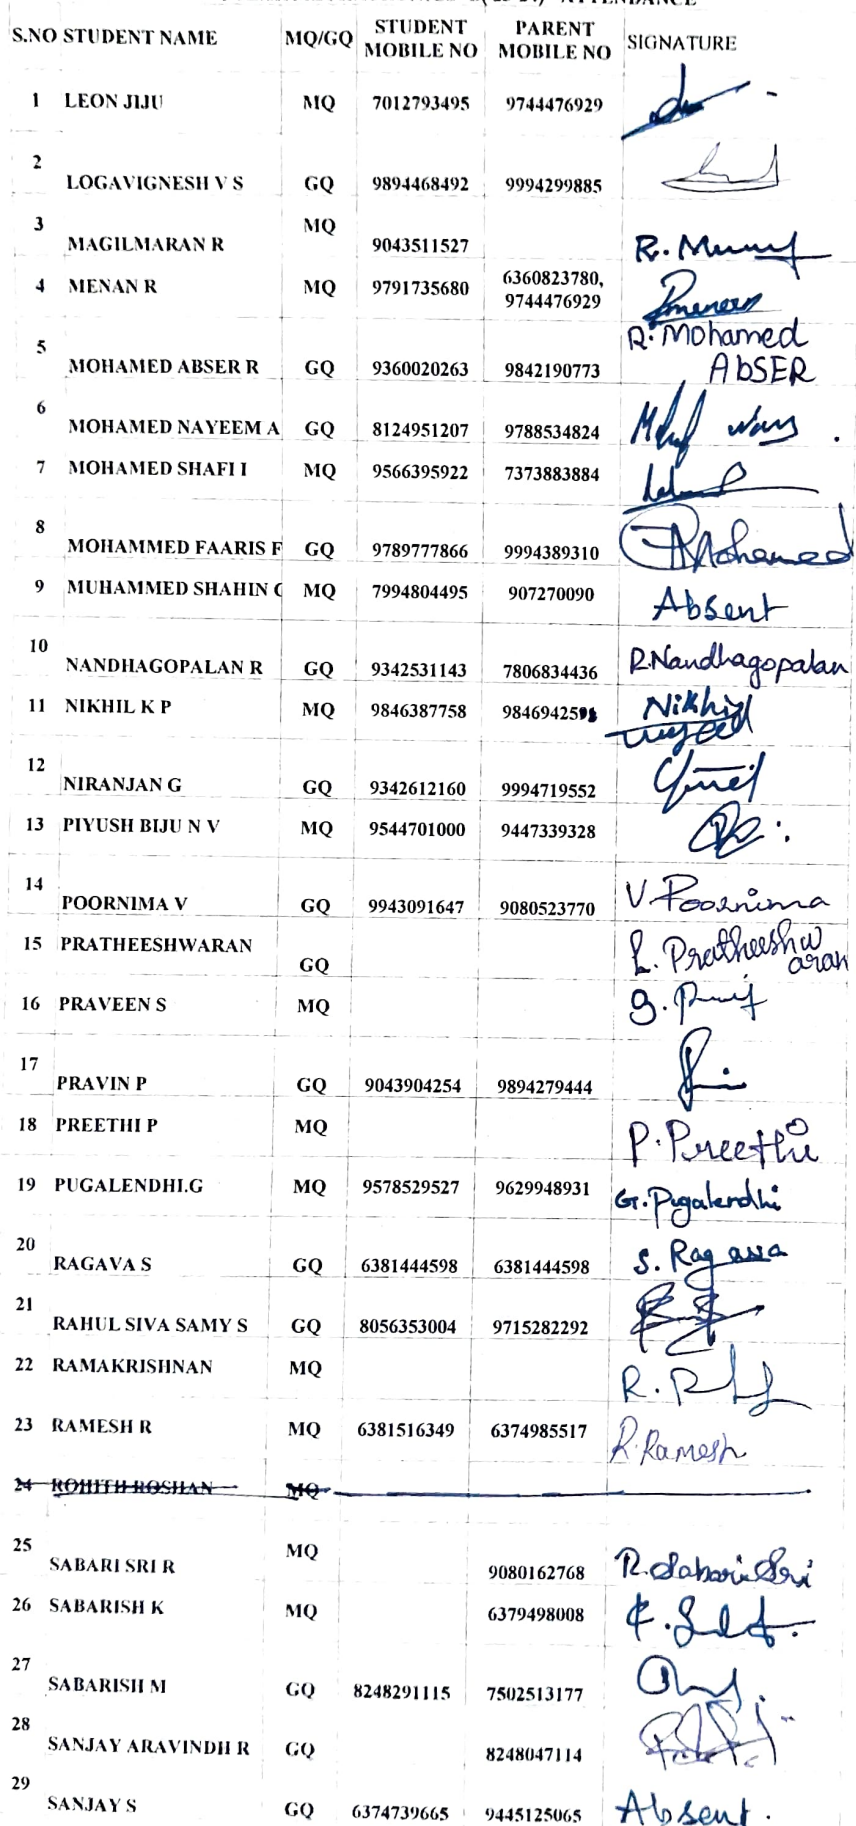 ATTENDANCE
S.NO STUDENT NAME MQ/GQ STUDENT MOBILE NO PARENT MOBILE NO SIGNATURE
1 LEON JIJU MQ 7012793495 9744476929
2 LOGAVIGNESH V S GQ 9894468492 9994299885
3 MAGILMARAN R MQ 9043511527 R.
4 MENAN R MQ 9791735680 6360823780, 9744476929
5 MOHAMED ABSER R GQ 9360020263 9842190773 R. MOhamed AbSER
6 MOHAMED NAYEEM A GQ 8124951207 9788534824
7 MOHAMED SHAFI I MQ 9566395922 7373883884
8 MOHAMMED FAARIS F GQ 9789777866 9994389310 Mohamed
9 MUHAMMED SHAHIN MQ 7994804495 907270090 Absent
10 NANDHAGOPALAN R GQ 9342531143 7806834436 R.Nandhagopalan
11 NIKHIL K P MQ 9846387758 98469425 Nikhil
12 NIRANJAN G GQ 9342612160 9994719552
13 PIYUSH BIJU N V MQ 9544701000 9447339328
14 POORNIMA V GQ 9943091647 9080523770 V. Poornima
15 PRATHEESHWARAN GQ L. Pratheeshwaran
16 PRAVEEN S MQ
17 PRAVIN P GQ 9043904254 9894279444
18 PREETHI P MQ P. Preethi
19 PUGALENDHI.G MQ 9578529527 9629948931 G. Pugalendhi
20 RAGAVA S GQ 6381444598 6381444598 S. Ragava
21 RAHUL SIVA SAMY S GQ 8056353004 9715282292
22 RAMAKRISHNAN MQ R.
23 RAMESH R MQ 6381516349 6374985517 R. Ramesh
24 ROHITH ROSHAN MQ
25 SABARI SRI R MQ 9080162768 R. Sabari Sri
26 SABARISH K MQ 6379498008
27 SABARISH M GQ 8248291115 7502513177
28 SANJAY ARAVINDH R GQ 8248047114
29 SANJAY S GQ 6374739665 9445125065 Absent.